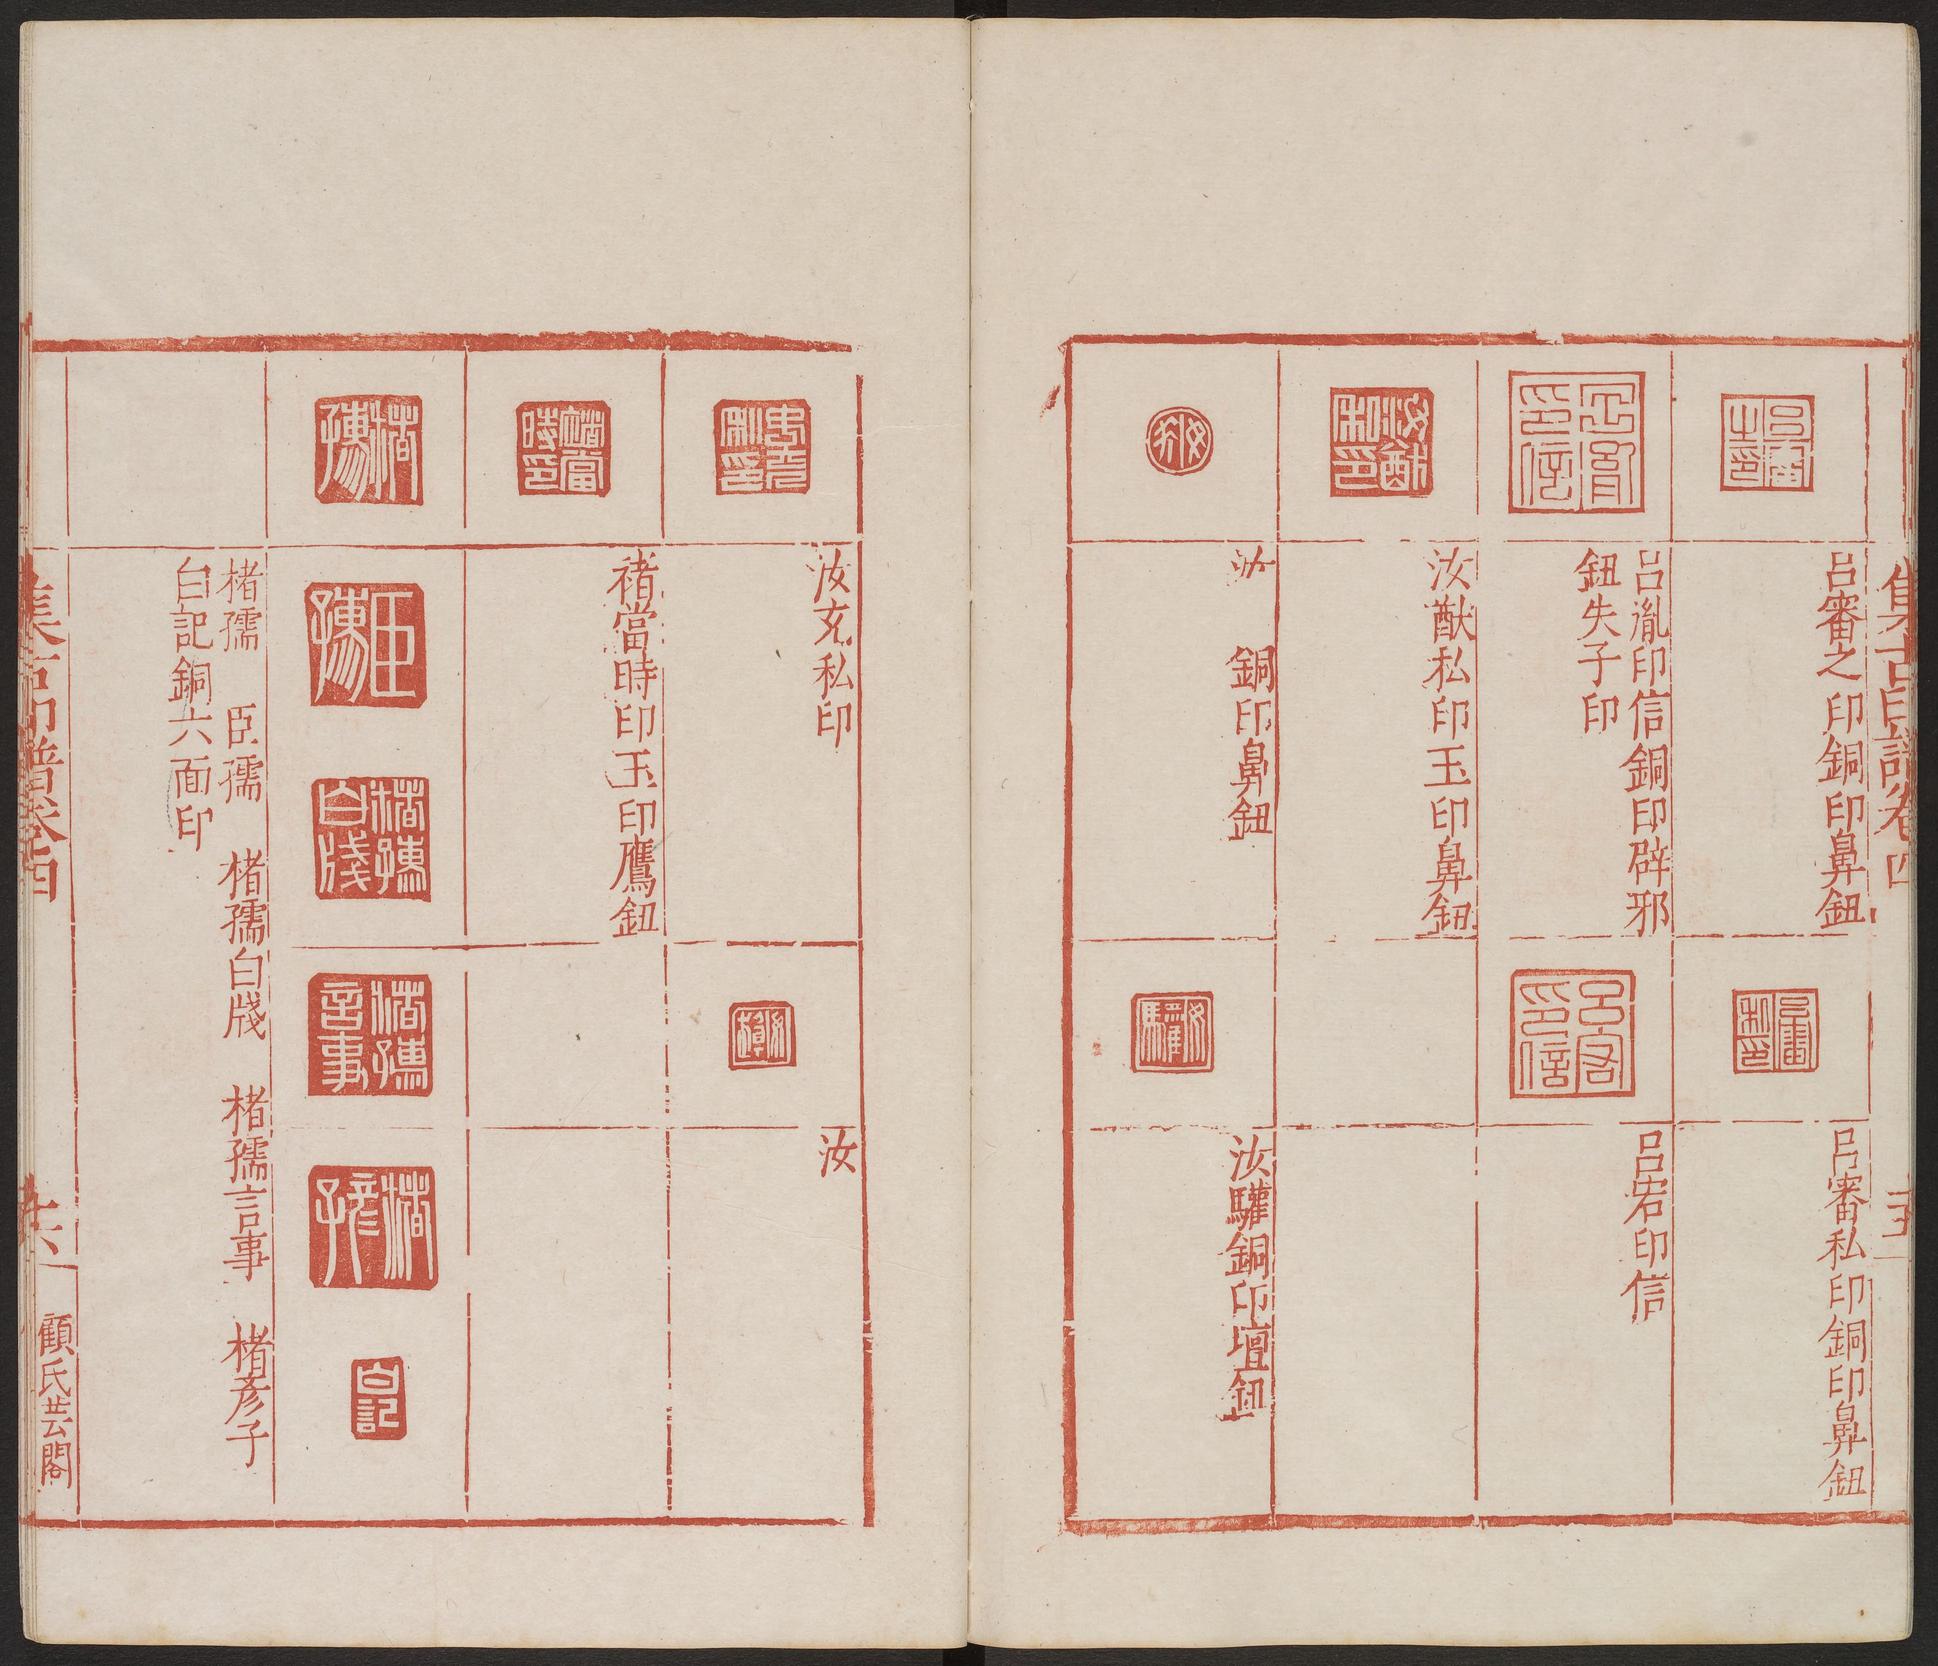 集古印譜卷四
呂審之印銅印鼻鈕
呂審私印銅印鼻鈕
呂胤印信銅印辟邪
鈕失子印
呂宕印信
汝猷私印玉印鼻鈕
汝 銅印鼻鈕
汝驩銅印壇鈕
汝充私印
汝
褚當時印玉印鷹鈕
楮孺 臣孺 楮孺白牋 楮孺言事 楮彥子
白記銅六面印
集古印譜卷四
顧氏芸閣